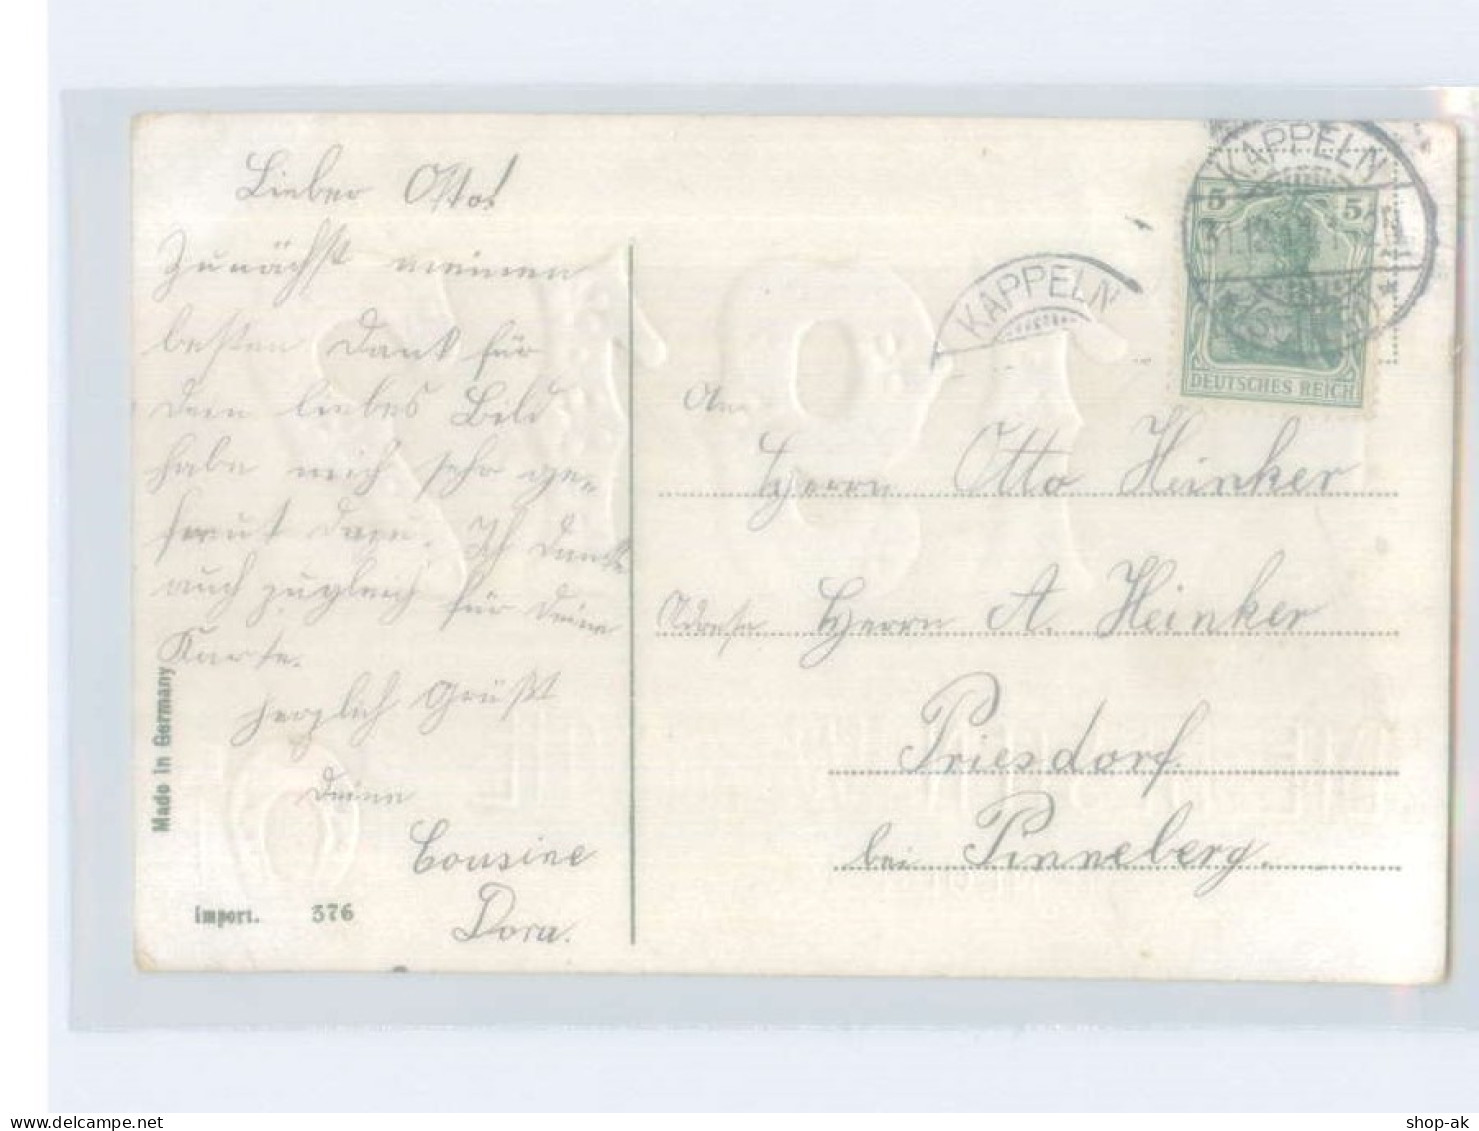 Lieber Otto!
Zunächst meinen
besten Dank für
Dein liebes Bild
habe mich sehr ge-
freut dazu. Ich danke
auch zugleich für Deine
Karte.
herzlich Grüßt
Deine
Cousine
Dora.
Made in Germany
Import. 376
KAPPELN
KAPPELN
5 5
DEUTSCHES REICH
An
Herrn Otto Heinker
Adresse Herrn A. Heinker
Priesdorf
bei Pinneberg.
shop-ak